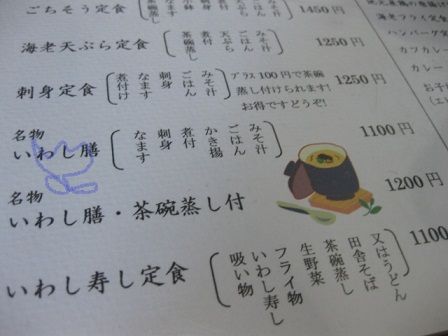 ごちそう定食 茶碗蒸し 小鉢 刺身 ごはん みそ汁 1450円
海老天ぷら定食 茶碗蒸し 煮付 天ぷら ごはん みそ汁 1250円
刺身定食 煮付け なます 刺身 ごはん みそ汁 プラス100円で茶碗
蒸し付けられます!
お得ですどうぞ! 1250円
名物
いわし膳 なます 刺身 煮付 かき揚 ごはん みそ汁 1100円
名物
いわし膳・茶碗蒸し付 1200円
いわし寿し定食 吸い物 いわし寿し フライ物 生野菜 茶碗蒸し 田舎そば 又はうどん 1100
海老フライ定食
ハンバーグ定食
カツカレー
カレー